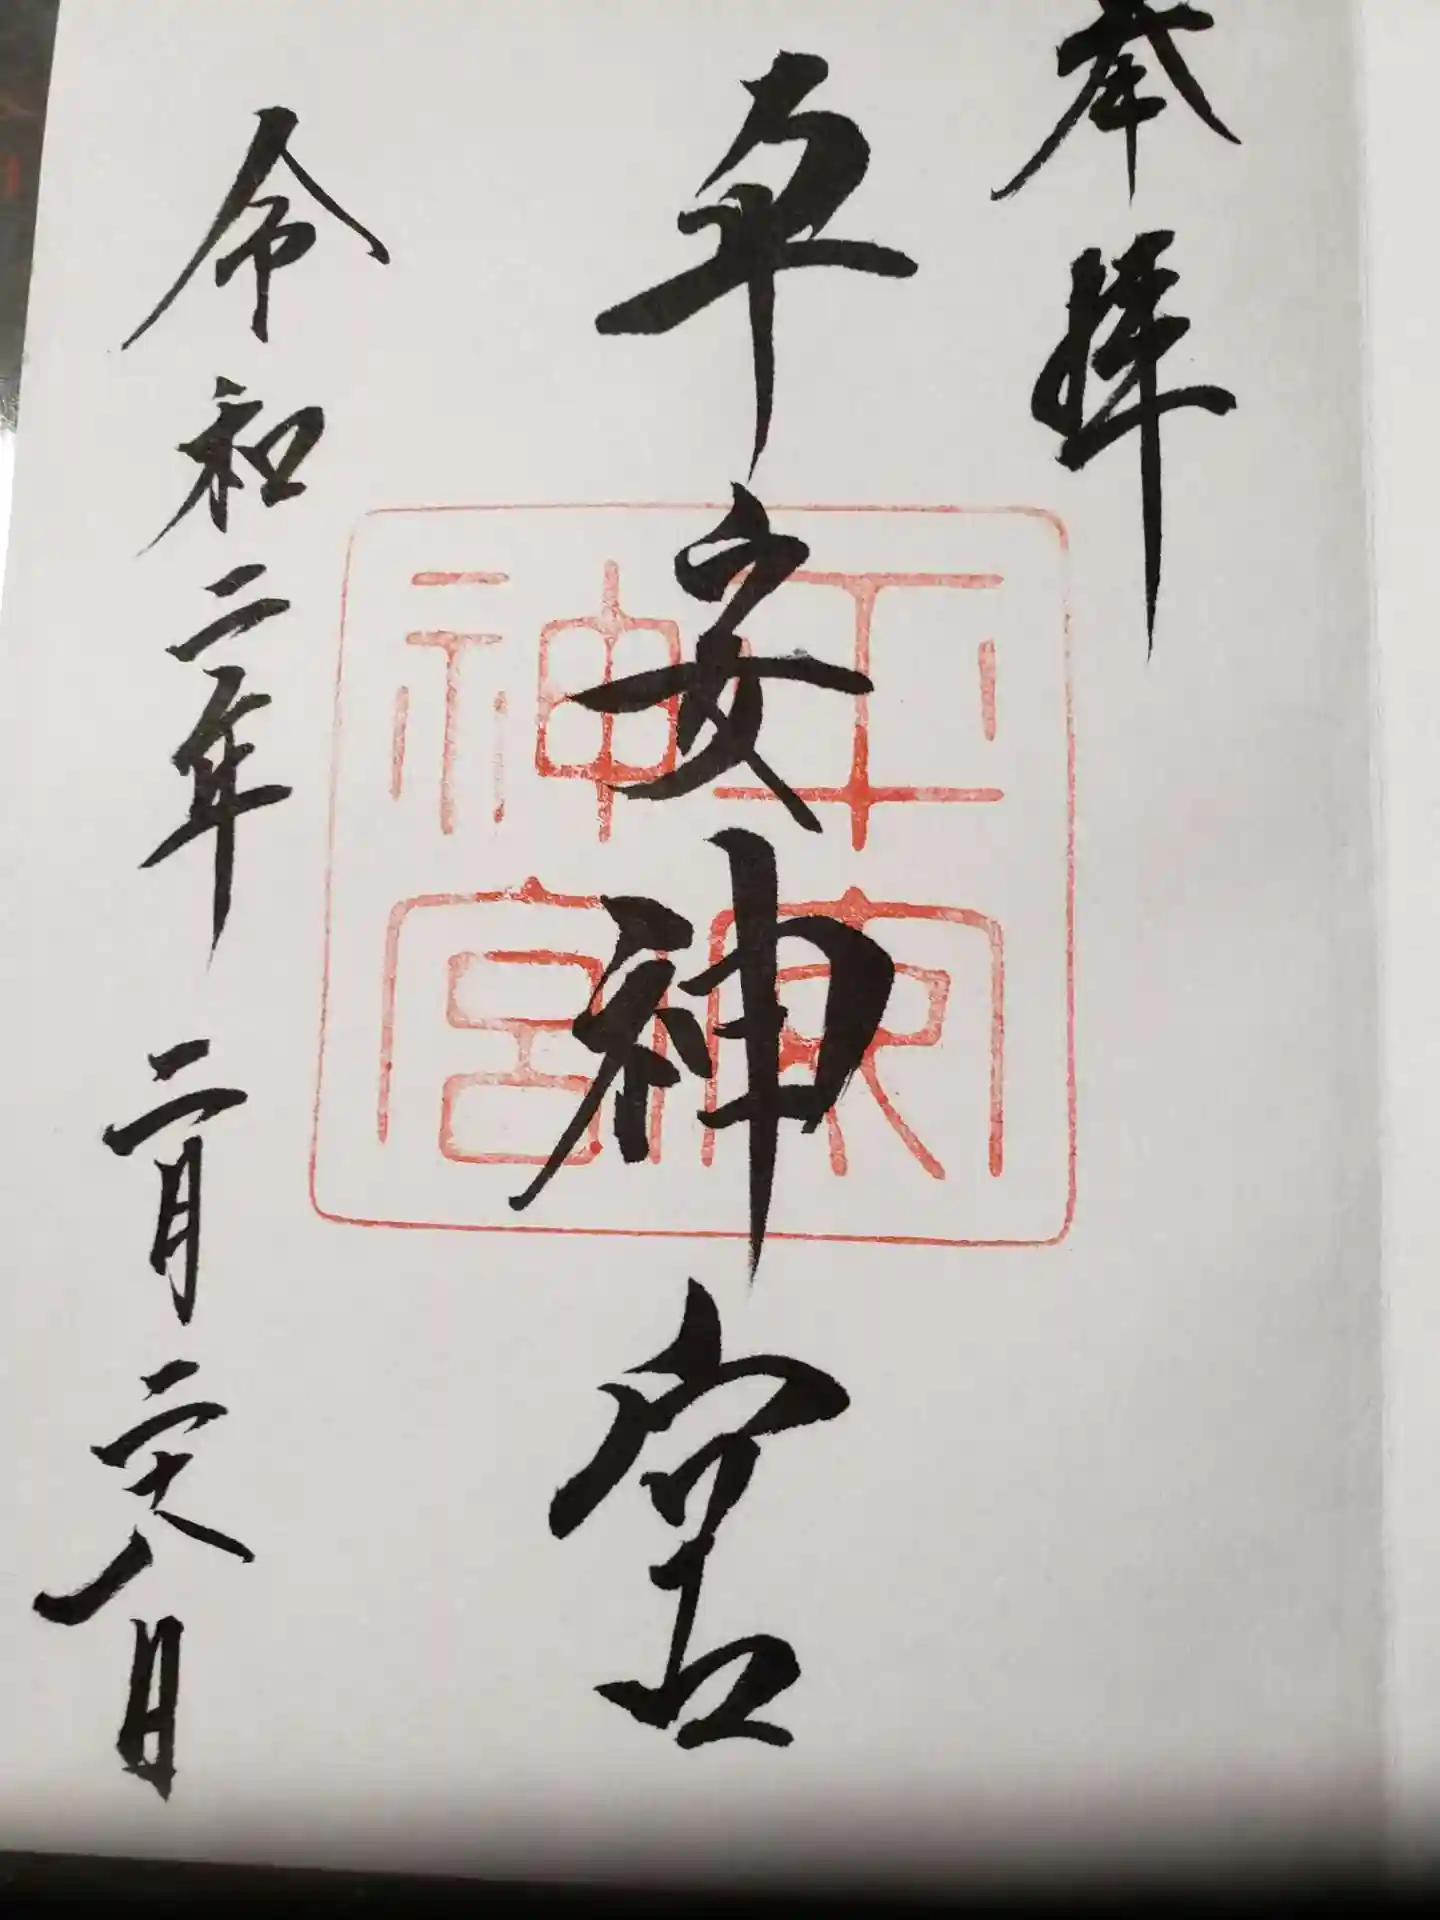 奉拝
平安神宮
平安神宮
令和二年二月二十八日